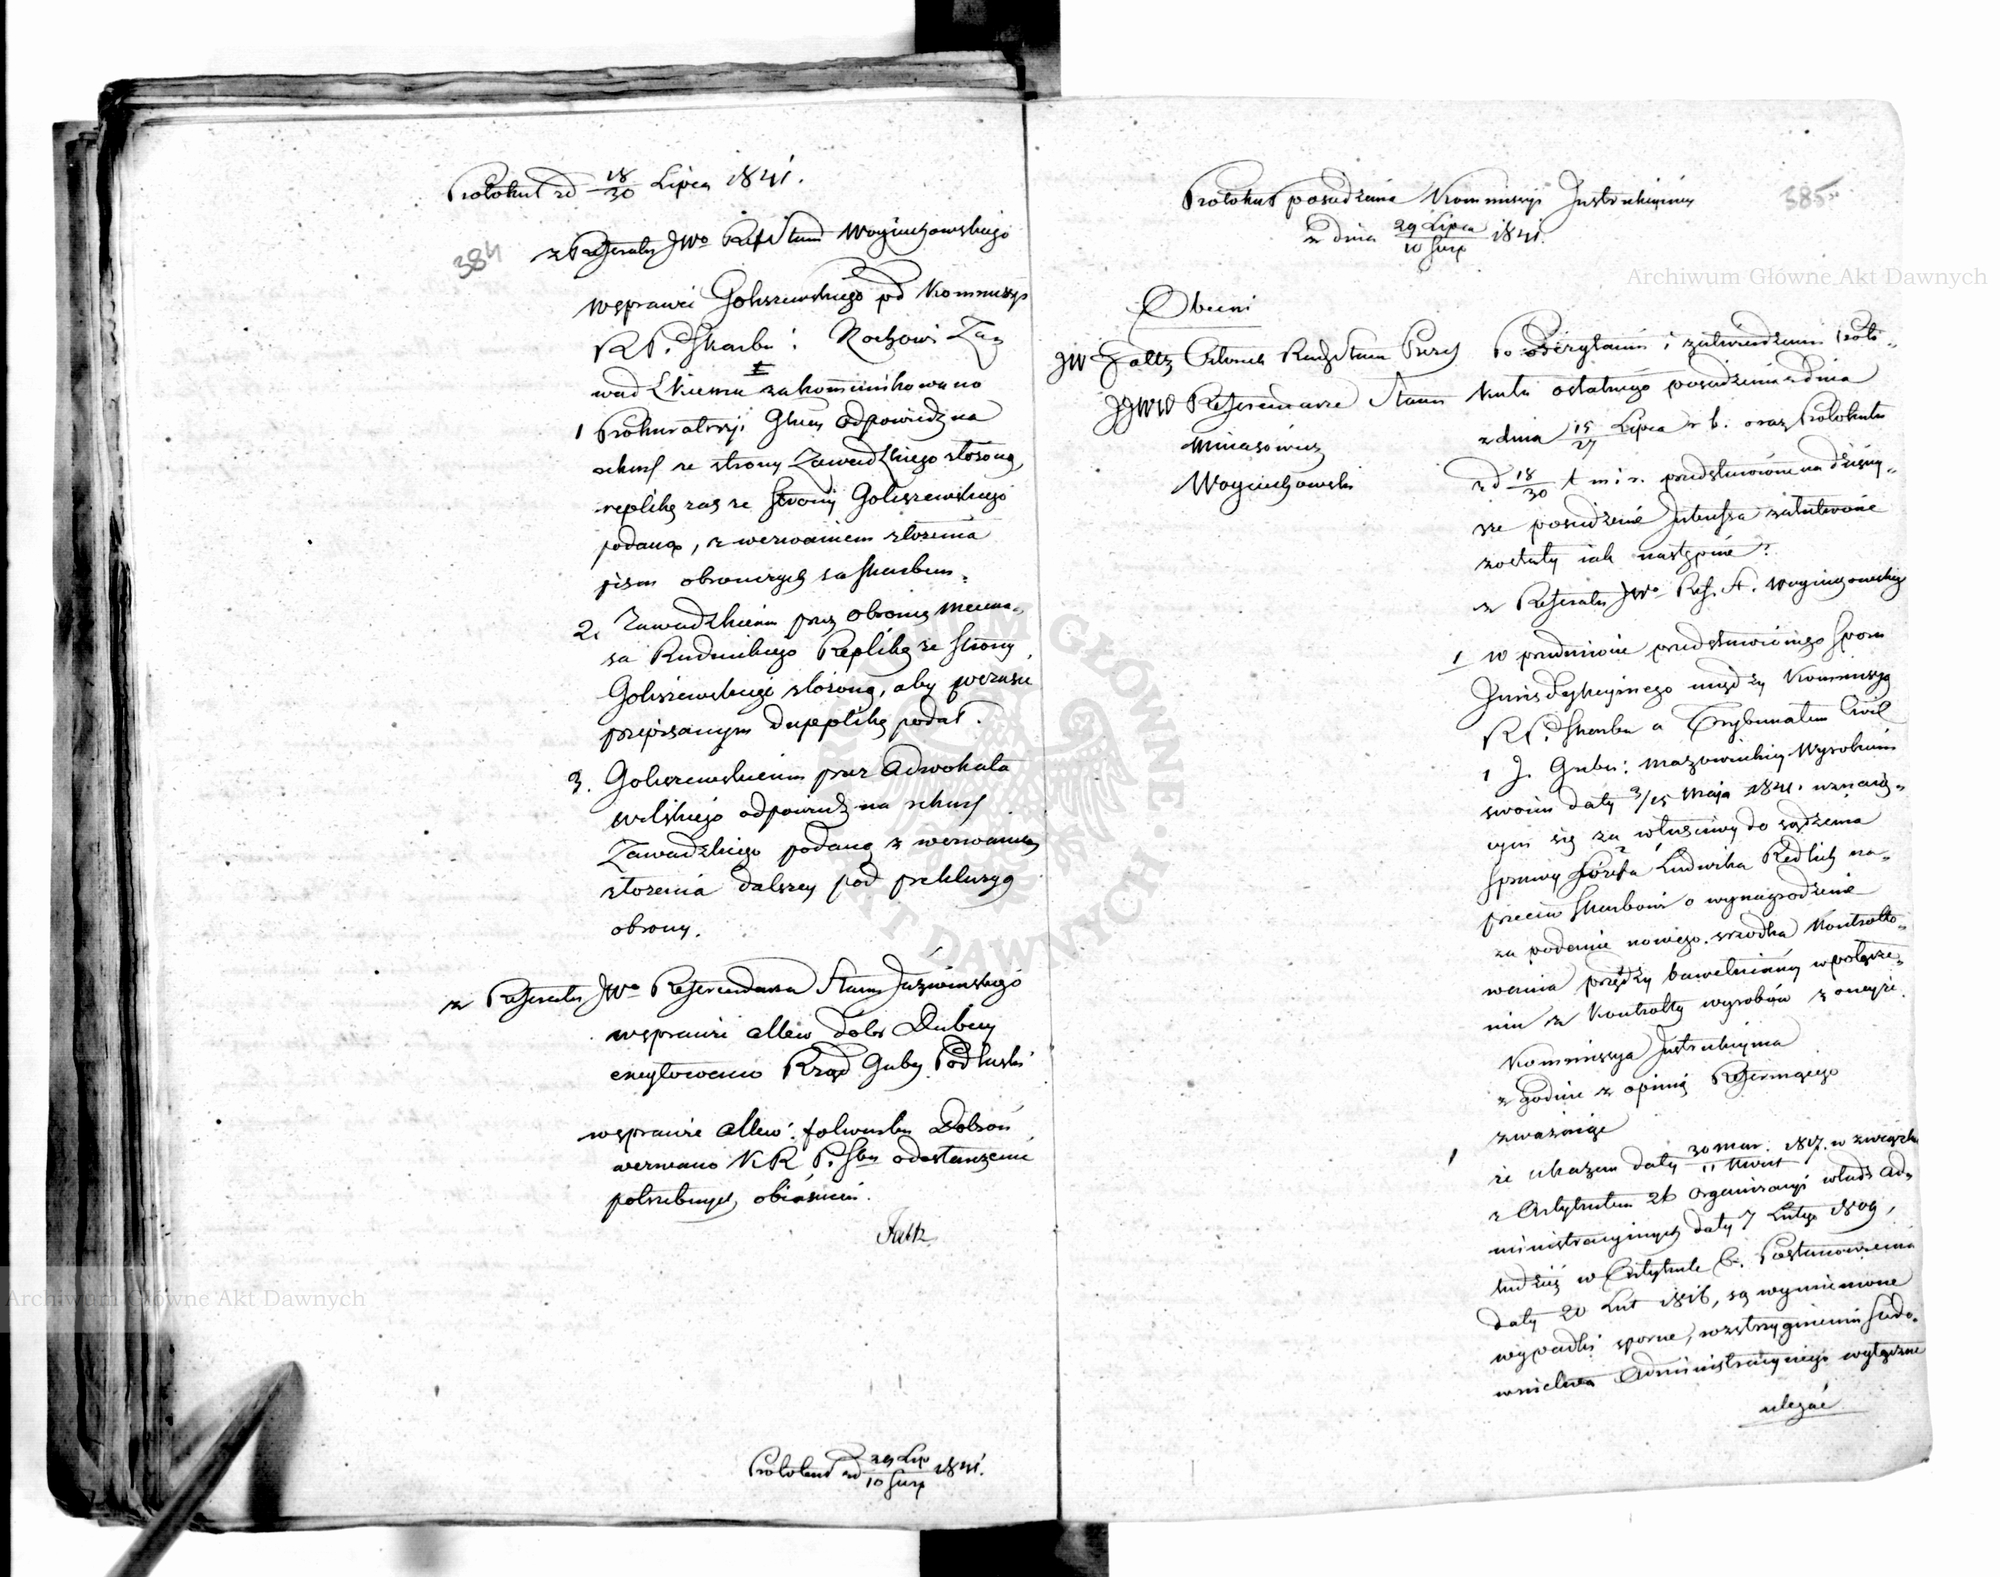 Protokuł z d 18/30 Lipca 1841.
384
z Referatu JWo Ref Stanu Woyciechowskiego
w sprawie Goliszewskiego pd Kommissyi
R P. Skarbu i Rochowi Za
wadzkiemu zakommunikowano
1 Prokuratoryi Głney odpowiedź na
rekurs ze strony Zawadzkiego złożoną,
replikę zaś ze strony Goliszewskiego
podaną, z wezwaniem złożenia
pism obronczych za Skarbem.
2. Zawadzkiemu przez obrońcę Mecena„
sa Rudnickiego Replikę ze strony
Goliszewskiego złożoną, aby w czasie
przepisanym dupplikę podał.
3. Goliszewskiemu przez Adwokata
Wolskiego odpowiedź na rekurs
Zawadzkiego podaną z wezwaniem
złożenia dalszey pod prekluzyą
obrony.
z Referatu JWo Referendarza Stanu Jaźwinskiego
w sprawie allew dóbr Dubicy
excytowano Rząd Guby Podlaski
w sprawie allew: folwarku Dobroń
wezwano K R P. Sbu o dostarczenie
potrzebnych obiaśnień.
Faltz
Protokuł z d 29 Lip/10 Sierp 1841.
Protokuł posiedzenia Kommissyi Instrukcyiney
z dnia 29 Lipca/10 Sierp 1841.
385
Obecni
JW Faltz Członek Rady Stanu Prezy
JJWW Referendarze Stanu
Minasowicz
Woyciechowski
Po odczytaniu i zatwierdzeniu Proto„
kułu ostatniego posiedzenia z dnia
z dnia 15/27 Lipca r b. oraz Protokułu
z d 18/30 t m i r. przedstawione na dzisiey„
sze posiedzenie Interessa załatwione
zostały iak następuie:
z Referatu JWo Ref. St. Woyciechowskiego
1 W przedmiocie przedstawionego sporu
Jurisdykcyinego między Kommissyą
R P. Skarbu a Trybunałem Cywil
1 J. Guber: Mazowieckiey Wyrokiem
swoim daty 3/15 Maja 1841. uznaią„
cym się za właściwy do sądzenia
sprawy Józefa Ludwika Redlich na„
przeciw Skarbowi o wynagrodzenie
za podanie nowego srzodka Kontrollo„
wania przędzy bawełnianey w połącze„
niu z Kontrollą wyrobów z oneyże.
Kommissya Instrukcyina
zgodnie z opinią Referuiącego
zważaiąc
1 że ukazem daty 30 Mar./11 Kwiet 1817. w związku
z Artykułem 26 Organizacyi władz Ad„
ministracyinych daty 7 Lutego 1809,
tudzież w Artykule 6. Postanowienia
daty 20 Lut 1816, są wymienione
wypadki sporne, rozstrzygnieniu sądo„
wnictwa Administracyinego wyłącznie
ulegać
Archiwum Główne Akt Dawnych
Archiwum Główne Akt Dawnych
ARCHIWUM GŁÓWNE AKT DAWNYCH